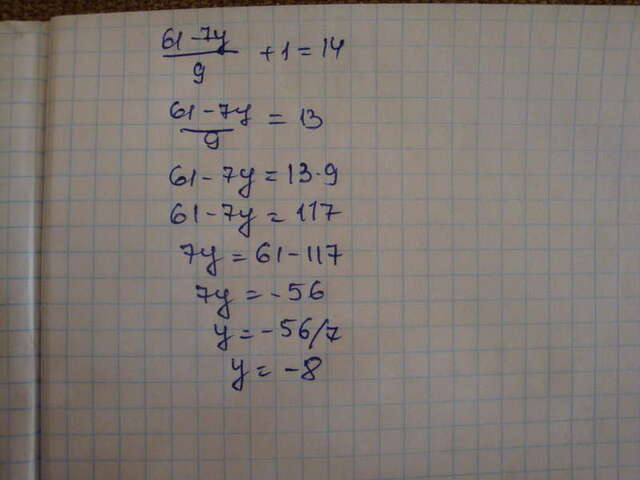 61-7y/9 + 1 = 14
61-7y/9 = 13
61-7y = 13·9
61-7y = 117
7y = 61-117
7y = -56
y = -56/7
y = -8